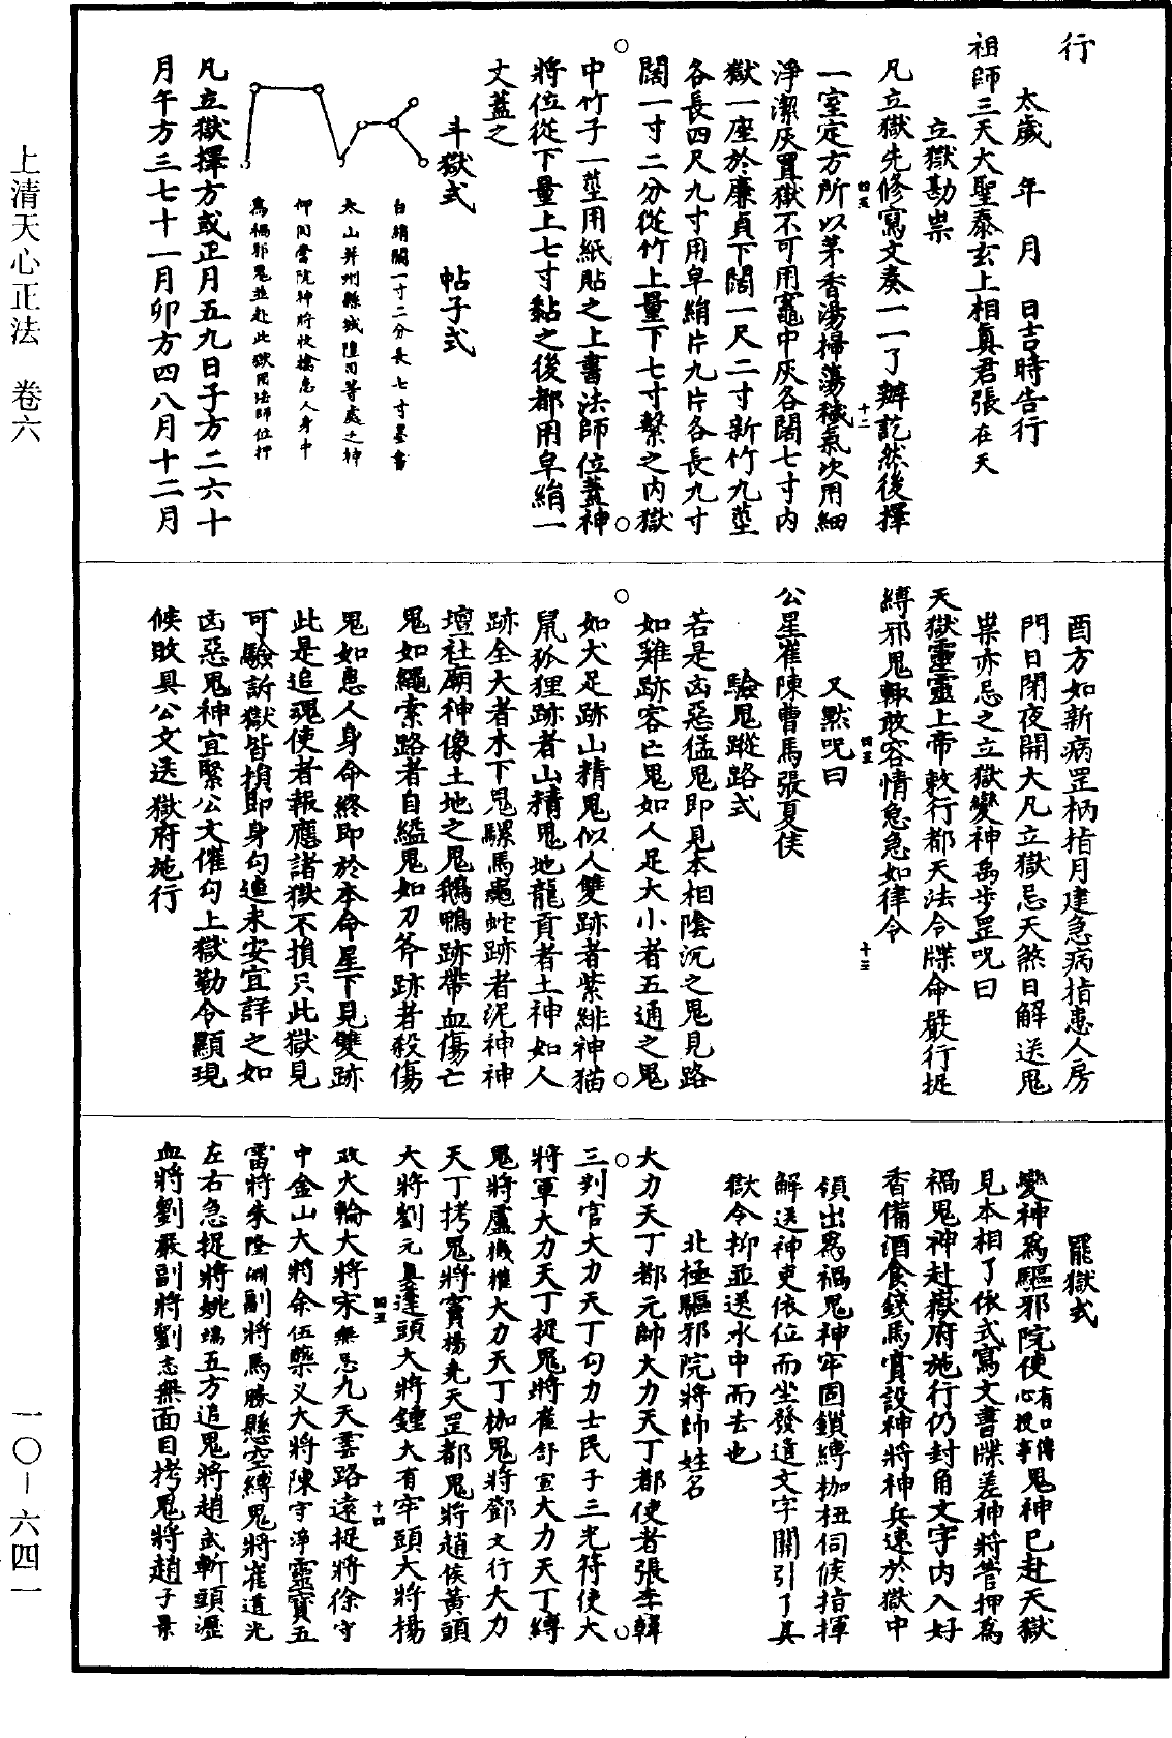 上清天心正法　卷六
一〇—六四一
行
太歲　年　月　日吉時告行
祖師三天大聖泰玄上相真君張在天
立獄勘祟
凡立獄先修寫文奏一一了辦訖然後擇
四五
十二
一室定方所以茅香湯掃蕩穢氣次用細
淨潔灰置獄不可用竈中灰各闊七寸內
獄一座於廉貞下闊一尺二寸新竹九莖
各長四尺九寸用皁絹片九片各長九寸
闊一寸二分從竹上量下七寸繫之內獄
中竹子一莖用紙貼之上書法師位蓋神
將位從下量上七寸黏之後都用皁絹一
丈蓋之
斗獄式　　帖子式
白絹闊一寸二分長七寸墨書
太山并州縣城隍司等處之神
仰同當院神將收擒患人身中
為禍邪鬼並赴此獄用法師位押
凡立獄擇方或正月五九日子方二六十
月午方三七十一月卯方四八月十二月
酉方如新病罡柄指月建急病指患人房
門日閉夜開大凡立獄忌天煞日解送鬼
祟亦忌之立獄變神禹步罡呪曰
天獄靈靈上帝敕行都天法令牒命嚴行捉
縛邪鬼輙敢容情急急如律令
四五
十三
又黙呪曰
公星崔陳曹馬張夏侯
驗鬼蹤路式
若是凶惡猛鬼即見本相陰沉之鬼見路
如雞跡客亡鬼如人足大小者五通之鬼
如犬足跡山精鬼似人雙跡者紫緋神猫
鼠狐狸跡者山精鬼地龍貢者土神如人
跡全大者木下鬼騾馬龜蛇跡者泥神神
壇社廟神像土地之鬼鵝鴨跡帶血傷亡
鬼如繩索路者自縊鬼如刀斧跡者殺傷
鬼如患人身命終即於本命星下見雙跡
此是追魂使者報應諸獄不損只此獄見
可驗訴獄皆損即身勾連未安宜詳之如
凶惡鬼神宜緊公文催勾上獄勒令顯現
候敗具公文送獄府施行
罷獄式
變神為驅邪院使有口傳心授事鬼神已赴天獄
見本相了依式寫文書牒差神將管押為
禍鬼神赴嶽府施行仍封角文字內入好
香備酒食錢馬賞設神將神兵速於獄中
領出為禍鬼神牢固鎖縛枷杻伺候指揮
解送神吏依位而坐發遣文字關引了其
獄令抑並送水中而去也
北極驅邪院將帥姓名
大力天丁都元帥大力天丁都使者張李韓
三判官大力天丁勾力士民子三光符使大
將軍大力天丁捉鬼將崔舒宣大力天丁縛
鬼將盧機權大力天丁枷鬼將鄧文行大力
天丁拷鬼將竇楊堯天罡都鬼將趙侯黃頭
大將劉元真蓬頭大將鍾大有牢頭大將楊
四五
十四
政火輪大將宋無忌九天雲路遠捉將徐守
中金山大將余伍藥叉大將陳守淨靈寶五
雷將朱隆淵副將馬勝懸空縛鬼將崔道光
左右急捉將姚端五方追鬼將趙武斬頭瀝
血將劉嚴副將劉志無面目拷鬼將趙子景